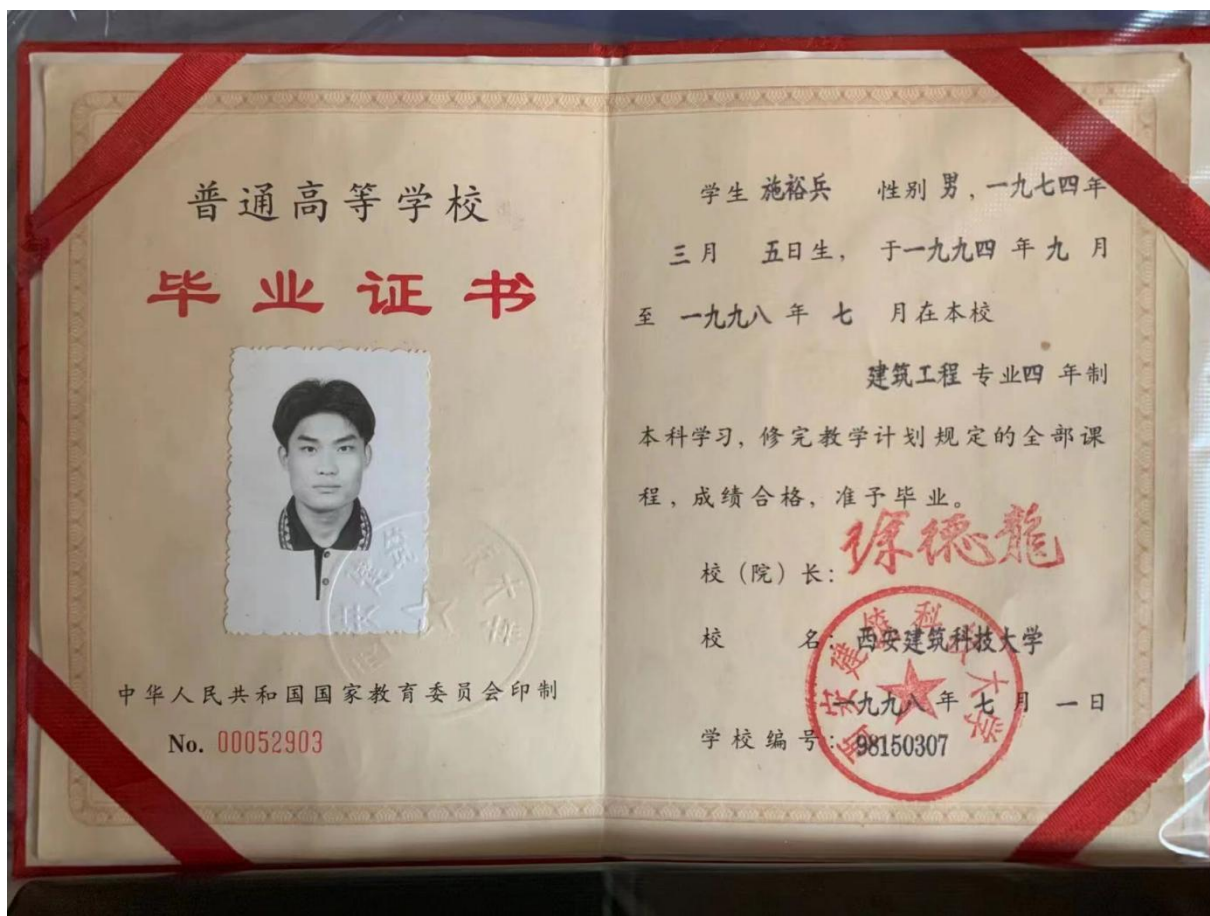 普通高等学校
毕业证书
中华人民共和国国家教育委员会印制
No. 00052903
学生 施裕兵 性别 男，一九七四年
三月 五日生， 于一九九四 年 九 月
至 一九九八 年 七 月在本校
建筑工程 专业四 年制
本科学习，修完教学计划规定的全部课
程，成绩合格，准予毕业。
校（院）长：徐德龍
校 名：西安建筑科技大学
一九九八 年 七 月 一日
学校编号：98150307